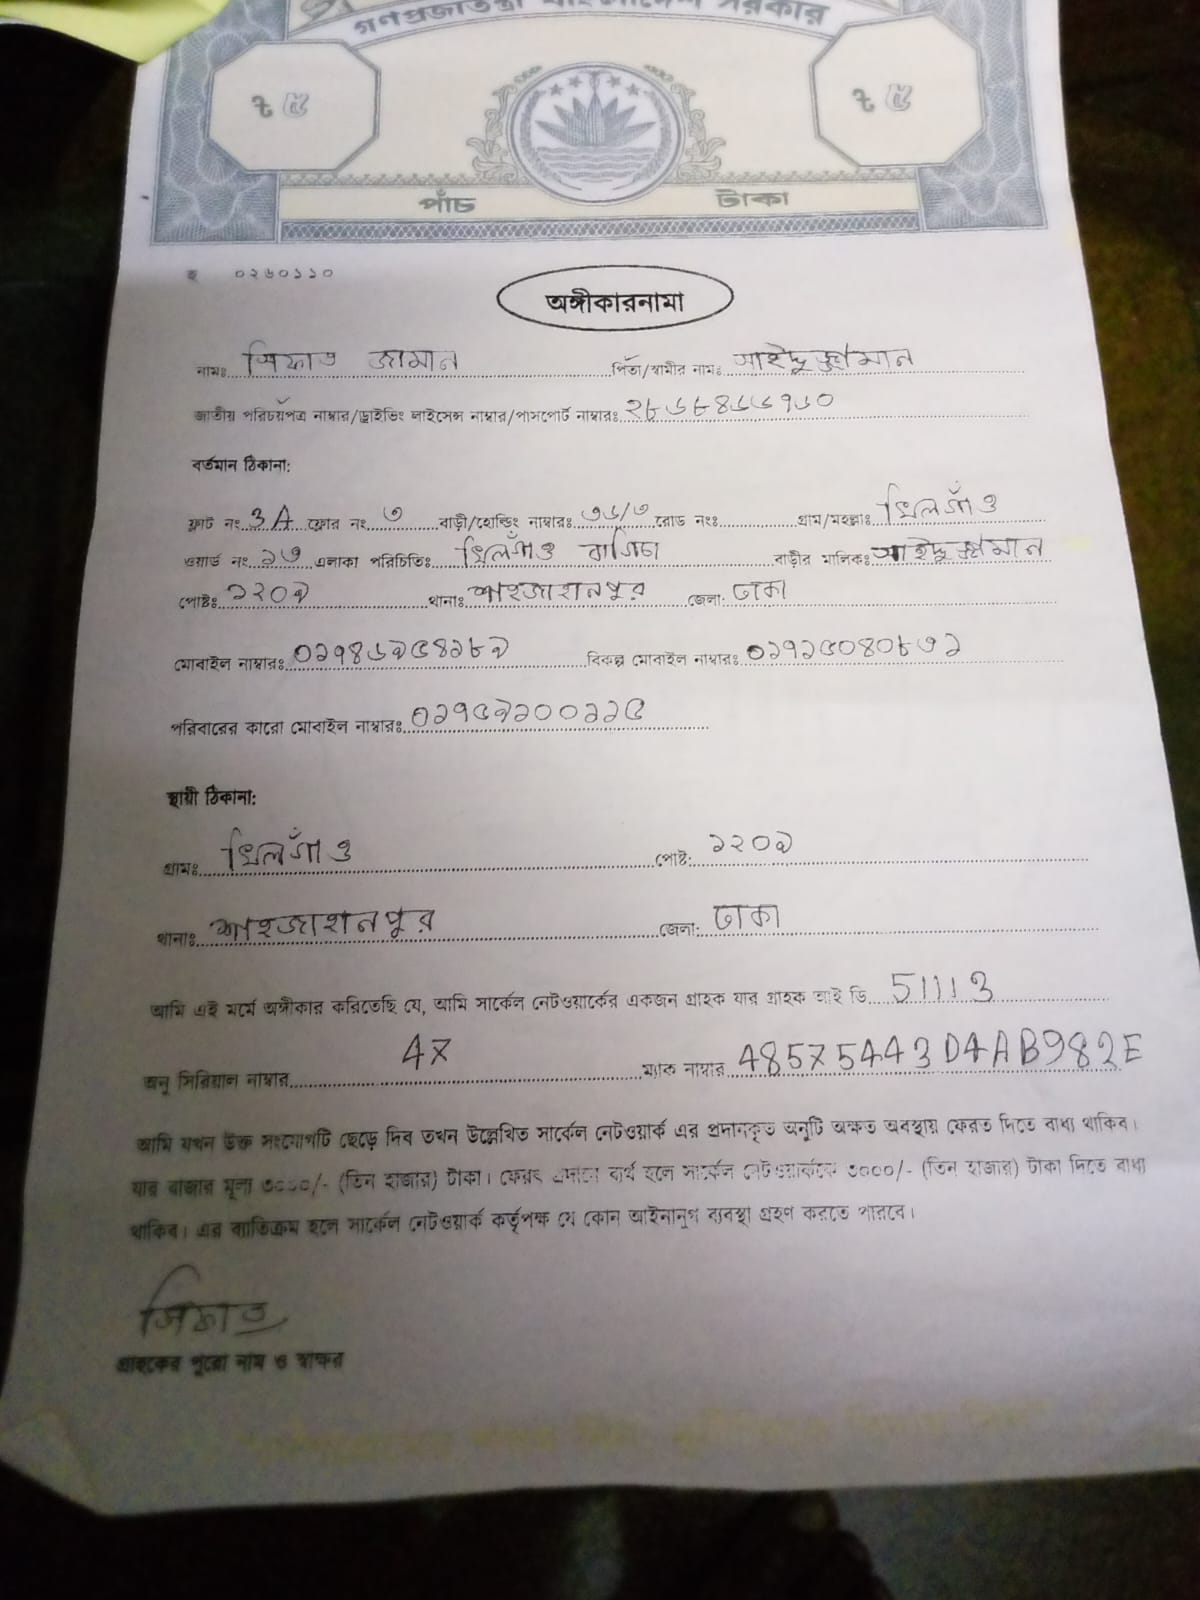 গণপ্রজাতন্ত্রী বাংলাদেশ সরকার
৳ ৫ ৳ ৫
পাঁচ টাকা
০২৬০১১০
অঙ্গীকারনামা
নামঃ সিফাত জামান পিতা/স্বামীর নামঃ সাইদুজ্জামান
জাতীয় পরিচয়পত্র নাম্বার/ড্রাইভিং লাইসেন্স নাম্বার/পাসপোর্ট নাম্বারঃ ২৮৬৮৪৬৬৭৬০
বর্তমান ঠিকানা:
ফ্লাট নং 3A ফ্লোর নং ৩ বাড়ী/হোল্ডিং নাম্বারঃ ৩৬/৩ রোড নংঃ গ্রাম/মহল্লাঃ খিলগাঁও
ওয়ার্ড নং ১৩ এলাকা পরিচিতিঃ খিলগাঁও বাগিচা বাড়ীর মালিকঃ সাইদুজ্জামান
পোষ্টঃ ১২০৯ থানাঃ শাহজাহানপুর জেলা: ঢাকা
মোবাইল নাম্বারঃ ০১৭৪৬৯৫৪১৮৯ বিকল্প মোবাইল নাম্বারঃ ০১৭১৫০৪০৮৩১
পরিবারের কারো মোবাইল নাম্বারঃ
স্থায়ী ঠিকানা:
গ্রামঃ খিলগাঁও পোষ্ট: ১২০৯
থানাঃ শাহজাহানপুর জেলা: ঢাকা
আমি এই মর্মে অঙ্গীকার করিতেছি যে, আমি সার্কেল নেটওয়ার্কের একজন গ্রাহক যার গ্রাহক আই ডি 51113
অনু সিরিয়াল নাম্বার 47 ম্যাক নাম্বার 485754443D4AB982E
আমি যখন উক্ত সংযোগটি ছেড়ে দিব তখন উল্লেখিত সার্কেল নেটওয়ার্ক এর প্রদানকৃত অনুটি অক্ষত অবস্থায় ফেরত দিতে বাধ্য থাকিব।
যার বাজার মূল্য ৩০০০/- (তিন হাজার) টাকা। ফেরৎ প্রদানে ব্যর্থ হলে সার্কেল নেটওয়ার্ককে ৩০০০/- (তিন হাজার) টাকা দিতে বাধ্য
থাকিব। এর ব্যাতিক্রম হলে সার্কেল নেটওয়ার্ক কর্তৃপক্ষ যে কোন আইনানুগ ব্যবস্থা গ্রহণ করতে পারবে।
সিফাত
গ্রাহকের পুরো নাম ও স্বাক্ষর